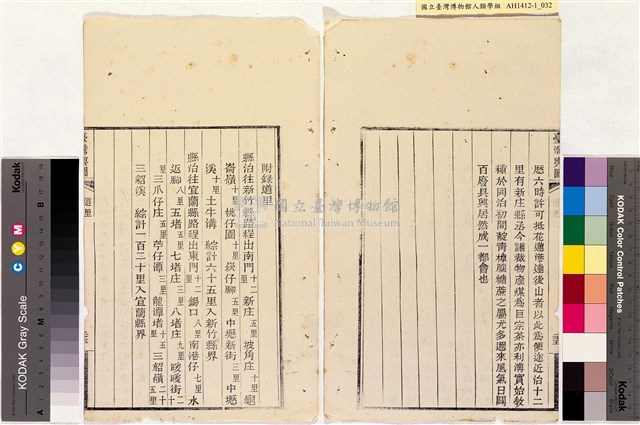 國立臺灣博物館人類學組 AH1412-1_032
歷六時許可抵花蓮港遠後山者以此爲便途近治十二
里有新庄縣丞今議裁物產煤爲巨宗茶亦利溥實始敎
種於同治初間靛菁樟腦糖蔗之屬尤多邇來風氣日闢
百廢具興居然成一都會也
附錄道里
縣治往新竹縣路程出南門 十二里 新庄 五里 坡角庄 十里
崙嶺 十里 桃仔園 十里 崁仔腳 五里 中壢新街 三里 中壢
溪 十里 土牛溝 綜計六十五里入新竹縣界
縣治往宜蘭縣路程出東門 十二里 錫口 八里 南港仔 七里 水
返腳 八里 五堵庄 五里 七堵庄 三里 八堵庄 二里 暖暖街 二十里
三爪仔庄 五里 苧仔潭 三里 龍潭堵 十五里 三貂嶺 二十五里
三貂溪 綜計一百二十里入宜蘭縣界
臺灣輿圖
道里
國立臺灣博物館
National Taiwan Museum
Kodak
KODAK Gray Scale
C Y M
KODAK Color Control Patches
Kodak